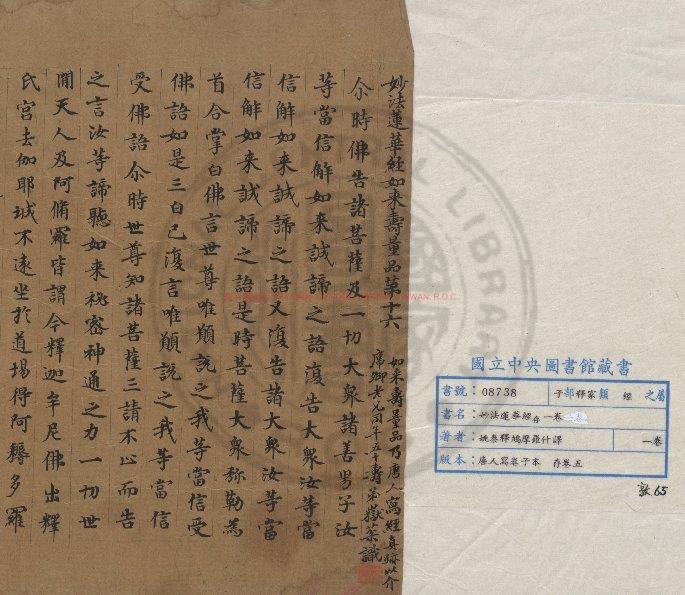 妙法蓮華經如来壽量品苐十六
如来壽量品乃唐人寫經真跡以介
席卿老兄四十五十壽 弟嶽棻識
尒時佛告諸菩薩及一切大衆諸善男子汝
等當信解如来誠諦之語復告大衆汝等當
信解如来誠諦之語又復告諸大衆汝等當
信解如来誠諦之語是時菩薩大衆弥勒為
首合掌白佛言世尊唯願説之我等當信受
佛語如是三白已復言唯願説之我等當信
受佛語尒時世尊知諸菩薩三請不止而告
之言汝等諦聽如来祕密神通之力一切世
間天人及阿脩羅皆謂今釋迦牟尼佛出釋
氏宮去伽耶城不遠坐於道場得阿耨多羅
國立中央圖書館藏書
書號：08738 子部釋家類 經 之屬
書名：妙法蓮華經存一卷
著者：姚秦釋鳩摩羅什譯 一卷
版本：唐人寫卷子本 存卷五
敦65